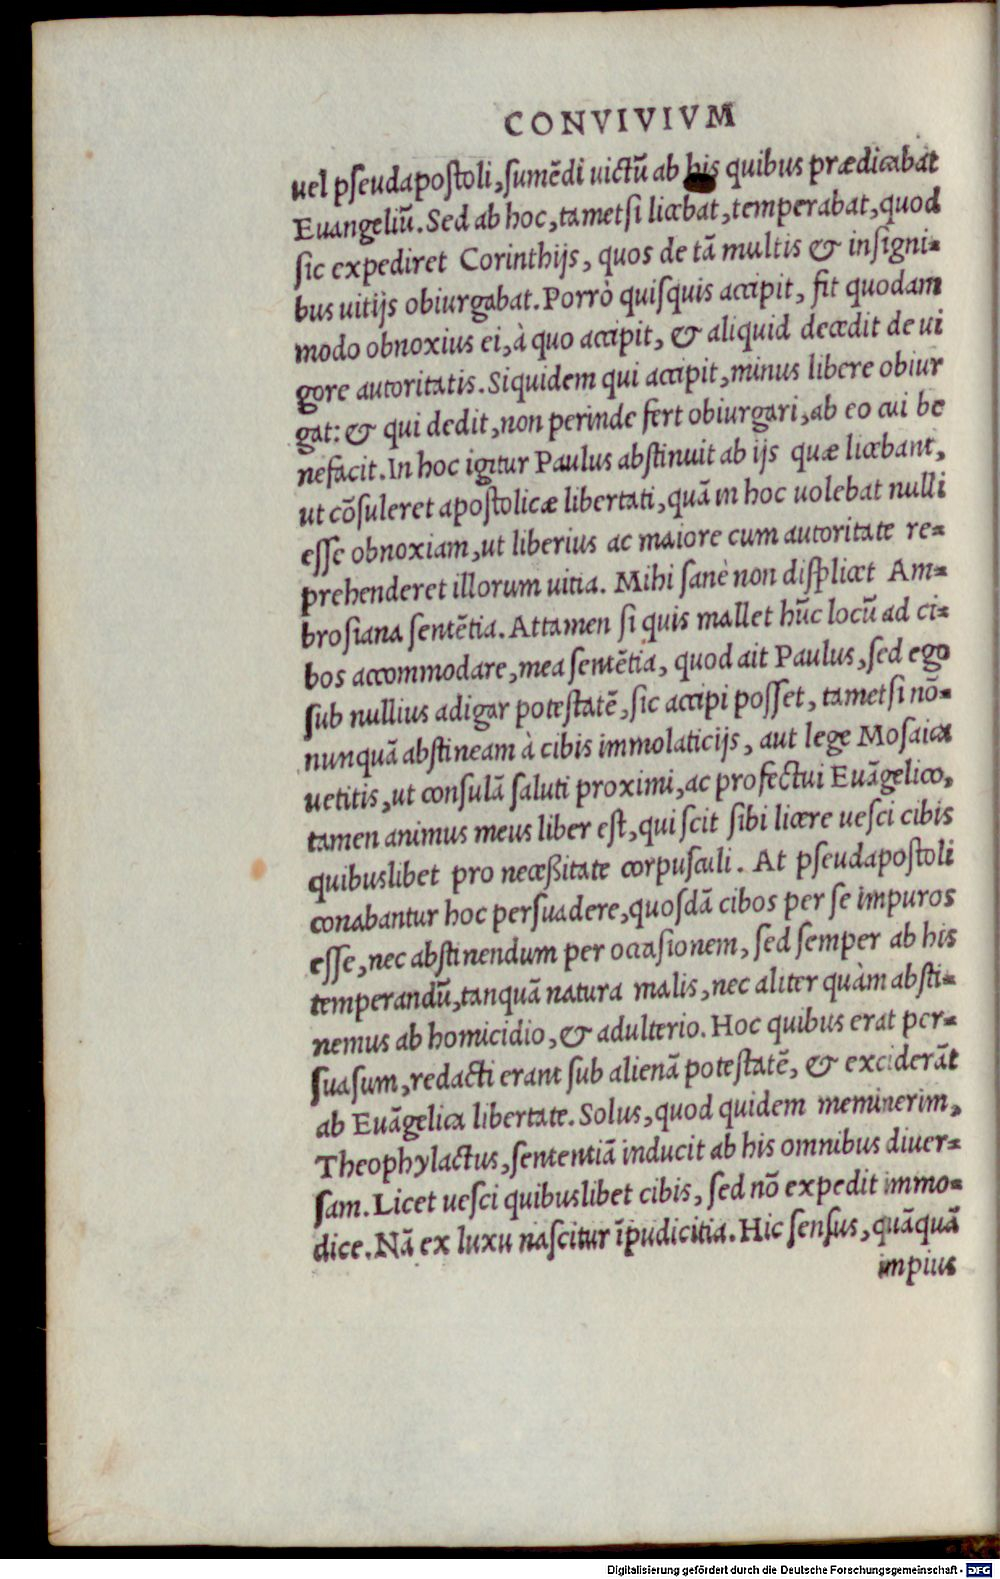 CONVIVIVM
uel pseudapostoli, sumēdi uictū ab his quibus prædicabat
Euangeliū. Sed ab hoc, tametsi licebat, temperabat, quod
sic expediret Corinthijs, quos de tā multis & insigni=
bus uitijs obiurgabat. Porrò quisquis accipit, fit quodam
modo obnoxius ei, à quo accipit, & aliquid decedit de ui
gore autoritatis. Siquidem qui accipit, minus libere obiur
gat: & qui dedit, non perinde fert obiurgari, ab eo cui be
nefacit. In hoc igitur Paulus abstinuit ab ijs quæ licebant,
ut cōsuleret apostolicæ libertati, quā in hoc uolebat nulli
esse obnoxiam, ut liberius ac maiore cum autoritate re=
prehenderet illorum uitia. Mihi sanè non displicet Am=
brosiana sentētia. Attamen si quis mallet hūc locū ad ci=
bos accommodare, mea sentētia, quod ait Paulus, sed ego
sub nullius adigar potestatē, sic accipi posset, tametsi nō=
nunquā abstineam à cibis immolaticijs, aut lege Mosaica
uetitis, ut consulā saluti proximi, ac profectui Euāgelico,
tamen animus meus liber est, qui scit sibi licere uesci cibis
quibuslibet pro neceßitate corpusculi. At pseudapostoli
conabantur hoc persuadere, quosdā cibos per se impuros
esse, nec abstinendum per occasionem, sed semper ab his
temperandū, tanquā natura malis, nec aliter quàm absti=
nemus ab homicidio, & adulterio. Hoc quibus erat per=
suasum, redacti erant sub alienā potestatē, & exciderāt
ab Euāgelica libertate. Solus, quod quidem meminerim,
Theophylactus, sententiā inducit ab his omnibus diuer=
sam. Licet uesci quibuslibet cibis, sed nō expedit immo=
dice. Nā ex luxu nascitur īpudicitia. Hic sensus, quāquā
impius
Digitalisierung gefördert durch die Deutsche Forschungsgemeinschaft - DFG